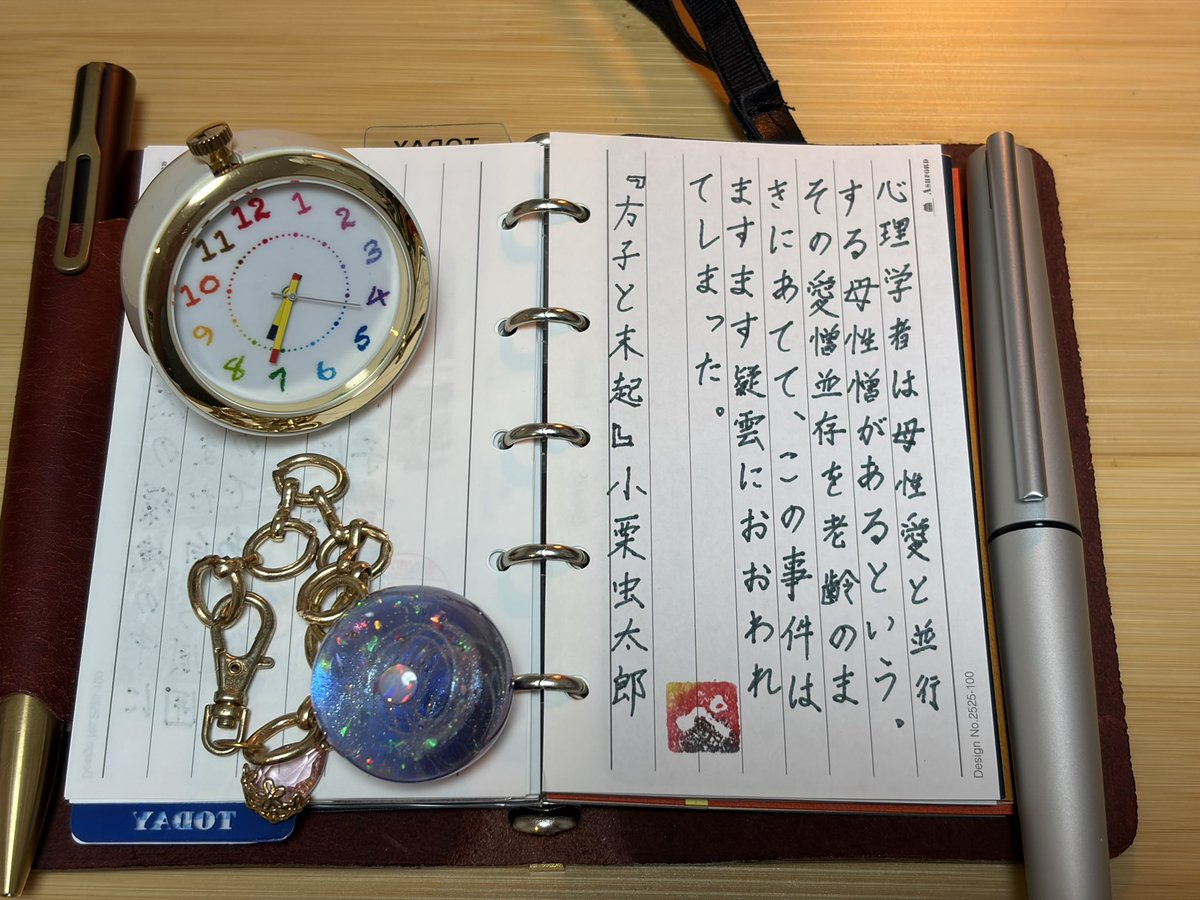 ASHFORD
心理学者は母性愛と並行
する母性憎があるという。
その愛憎並存を老齢のま
きにあてて、この事件は
ますます疑雲におおわれ
てしまった。
『方子と末起』小栗虫太郎
Design No.2525-100
12
1
2
3
4
5
6
7
8
9
10
11
TODAY
TODAY